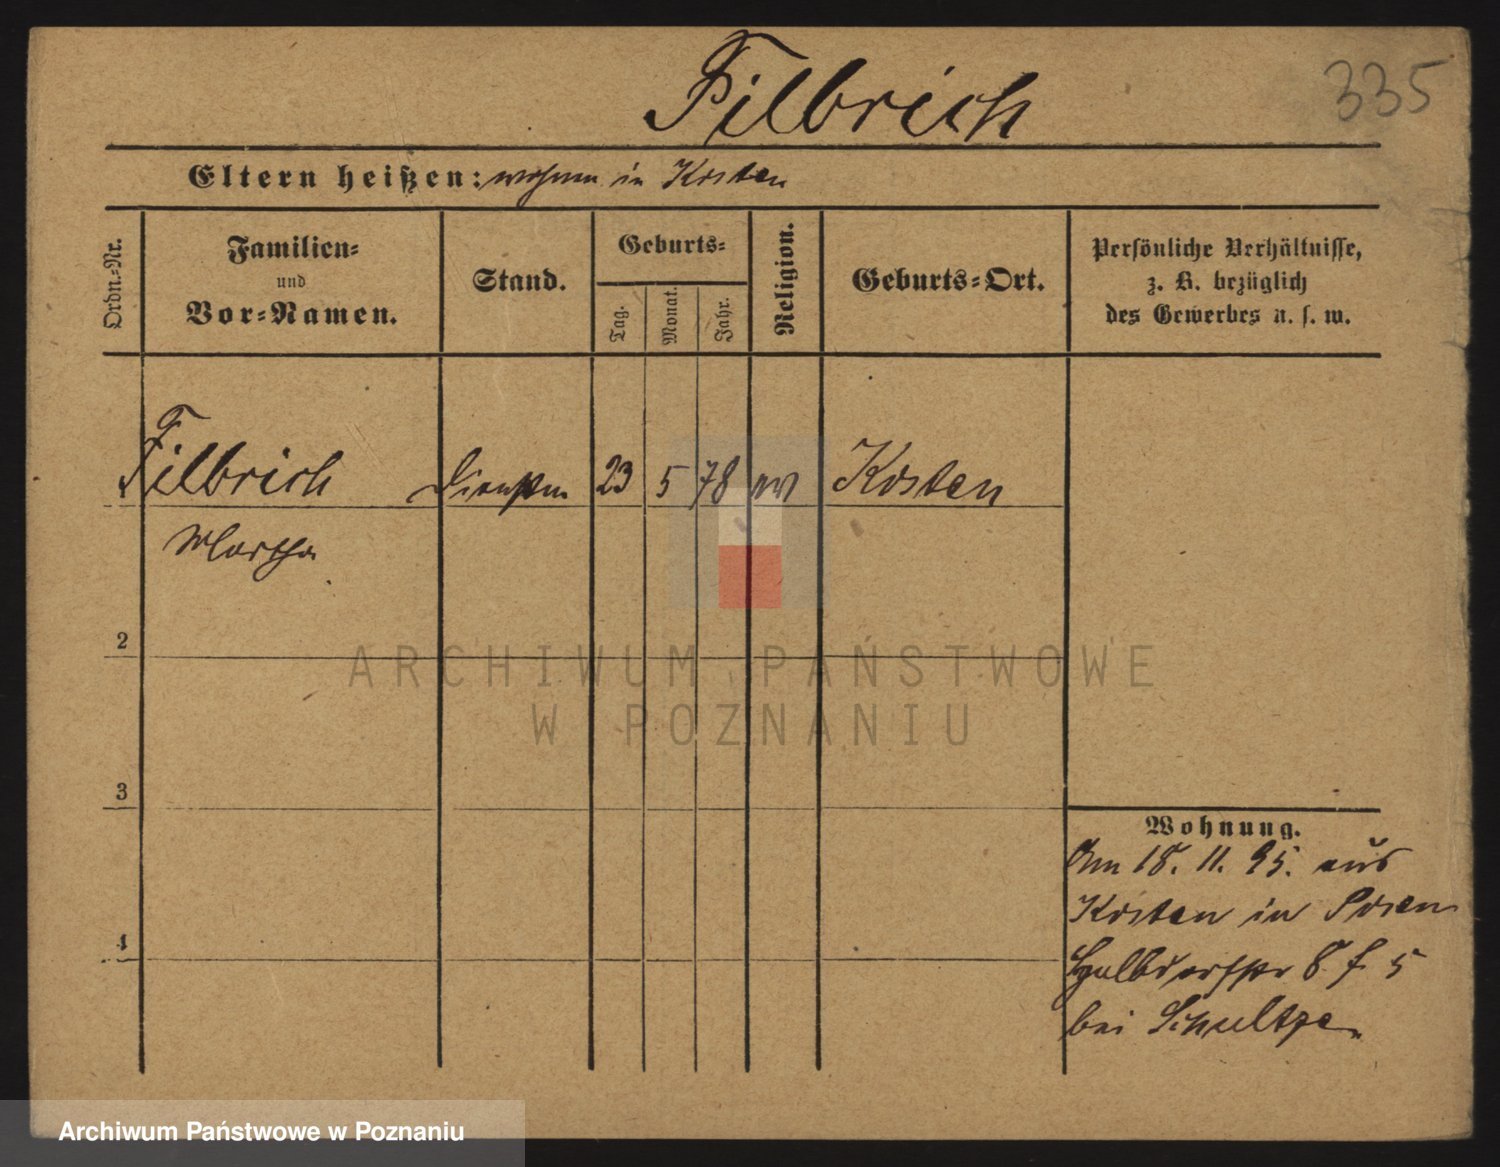 Filbrich
335
Eltern heißen: wohnen in Kosten
Ordn.-Nr.
Familien-
und
Vor-Namen.
Stand.
Geburts-
Tag.
Monat.
Jahr.
Religion.
Geburts-Ort.
Persönliche Verhältnisse,
z. B. bezüglich
des Gewerbes u. s. w.
Filbrich 23 5 78 ev Kosten
Martha
2
3
4
Wohnung.
Am 18. 11. 95. aus
Kosten in Posen
Halbdorfstr 8 f. 5
bei Schultze
ARCHIWUM PAŃSTWOWE
W POZNANIU
Archiwum Państwowe w Poznaniu